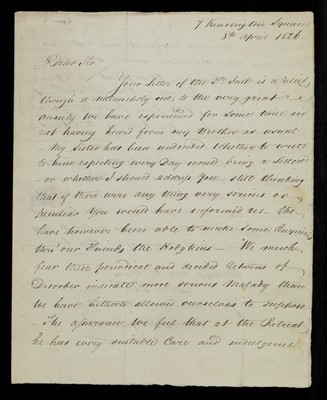 7 Kensington Square
8th April 1826
Dear Sir
Your Letter of the 5th Inst is a relief
though a melancholy one, to the very great
anxiety we have experienced for some time in
not having heard from my Brother as usual
My Sister has been undecided whether to write
to him expecting every Day would bring a Letter
- or whether I should address You - still thinking
that if there were any thing very serious or
peculiar You would have informed us - We
have however been able to make some Enquiries
thro' our Friends the Hodgkins - We much
fear these periodical and decided Returns of
Disorder indicate more serious Malady than
we have hitherto allowed ourselves to suppose
- The assurance we feel that at the Retreat
he has every suitable Care and indulgence